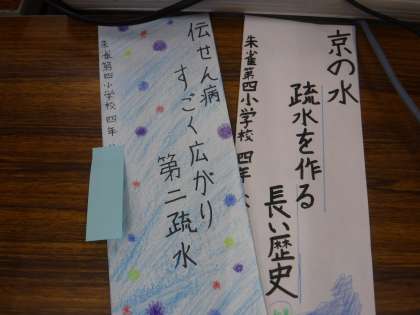 京の水
疏水を作る
長い歴史
朱雀第四小学校 四年
伝せん病
すごく広がり
第二疏水
朱雀第四小学校 四年